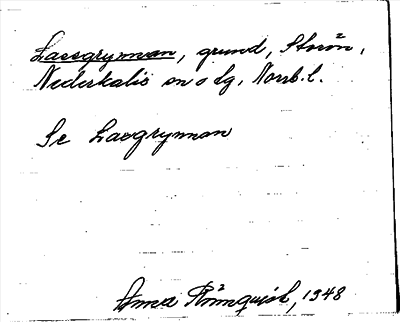 Laesgrynnan, grund, Storön,
Nederkalix sn o lg, Norrb. l.
Se Laesgrynnan
Anna Rönnquist, 1948